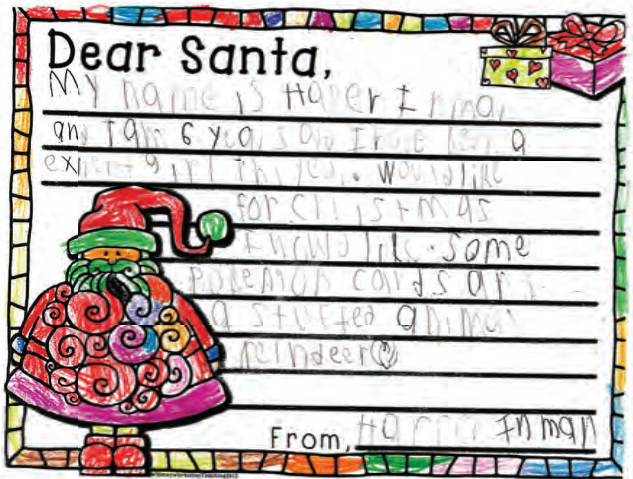 Dear Santa,
My name is Haper Inman
and I am 6 years old I have been a
expert girl this year. Would like
for Christmas
I would like some
pokemon cards and
a stuffed animal
reindeer
From, Inman